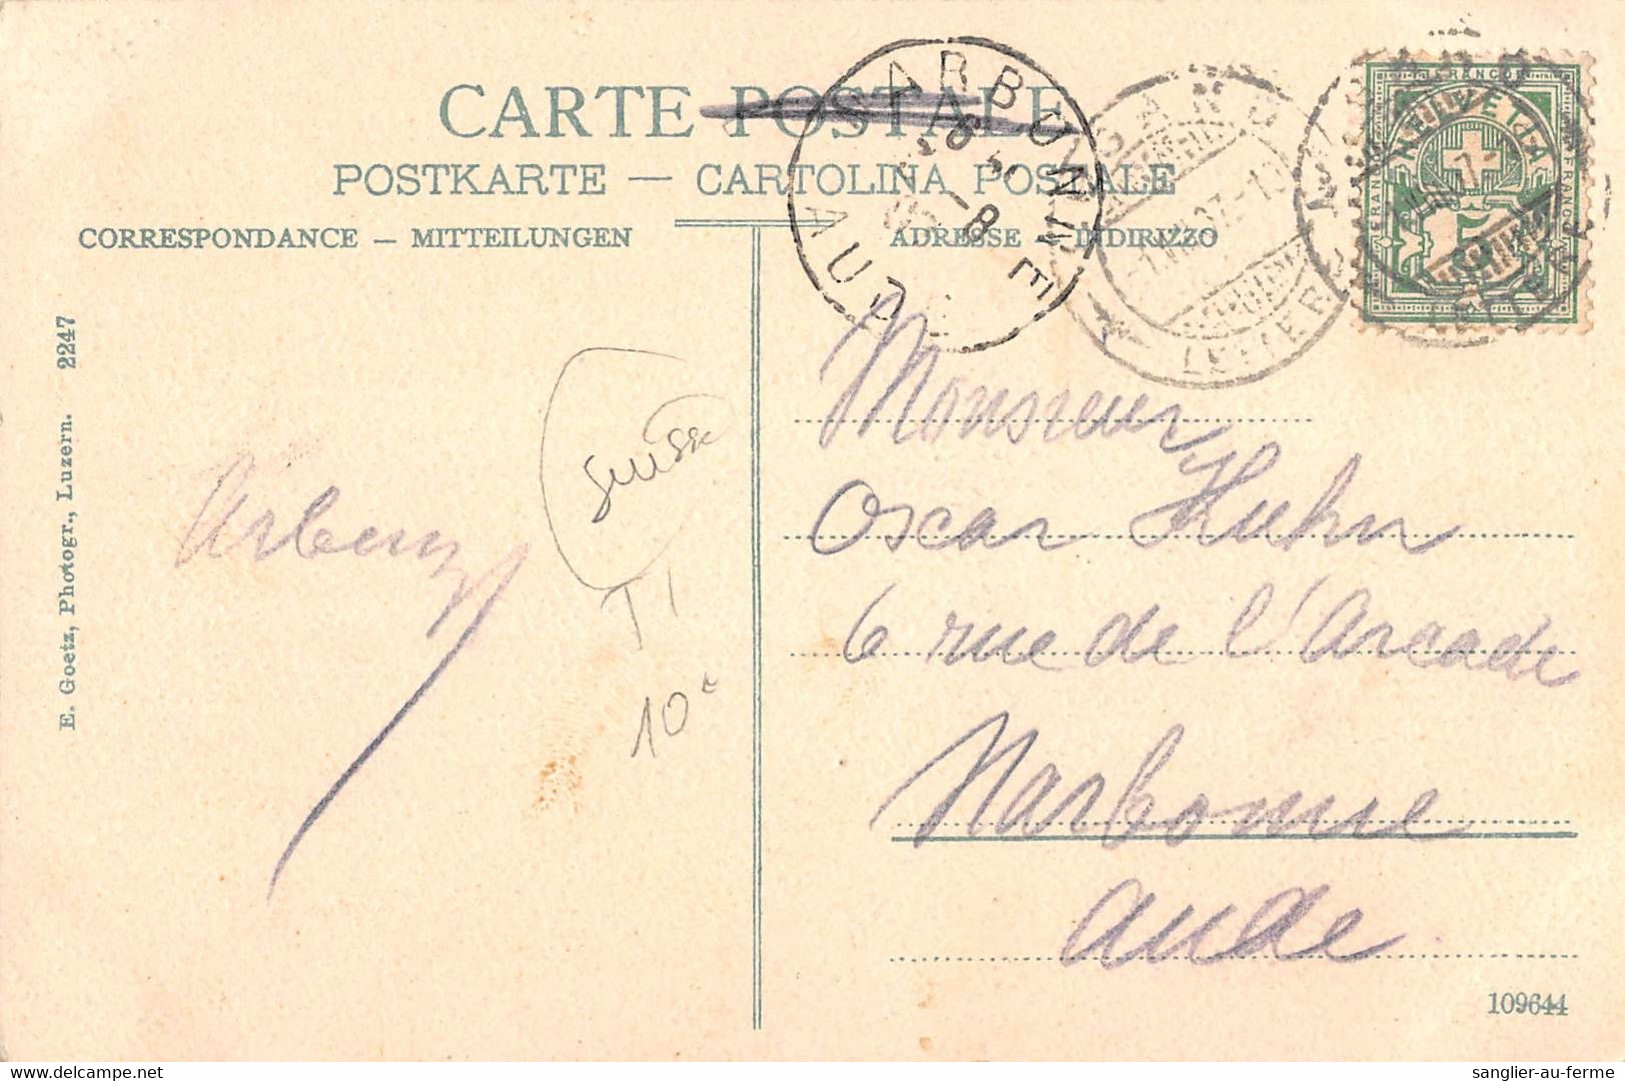 CARTE POSTALE
POSTKARTE — CARTOLINA POSTALE
CORRESPONDANCE — MITTEILUNGEN
ADRESSE — INDIRIZZO
NARBONNE
AUDE
LUGANO
LETTERE
FRANCO
HELVETIA
5
E. Goetz, Photogr., Luzern. 2247
Suisse
TI
10
Monsieur
Oscar Huhn
6 rue de l'Arcade
Narbonne
Aude
109644
sanglier-au-ferme